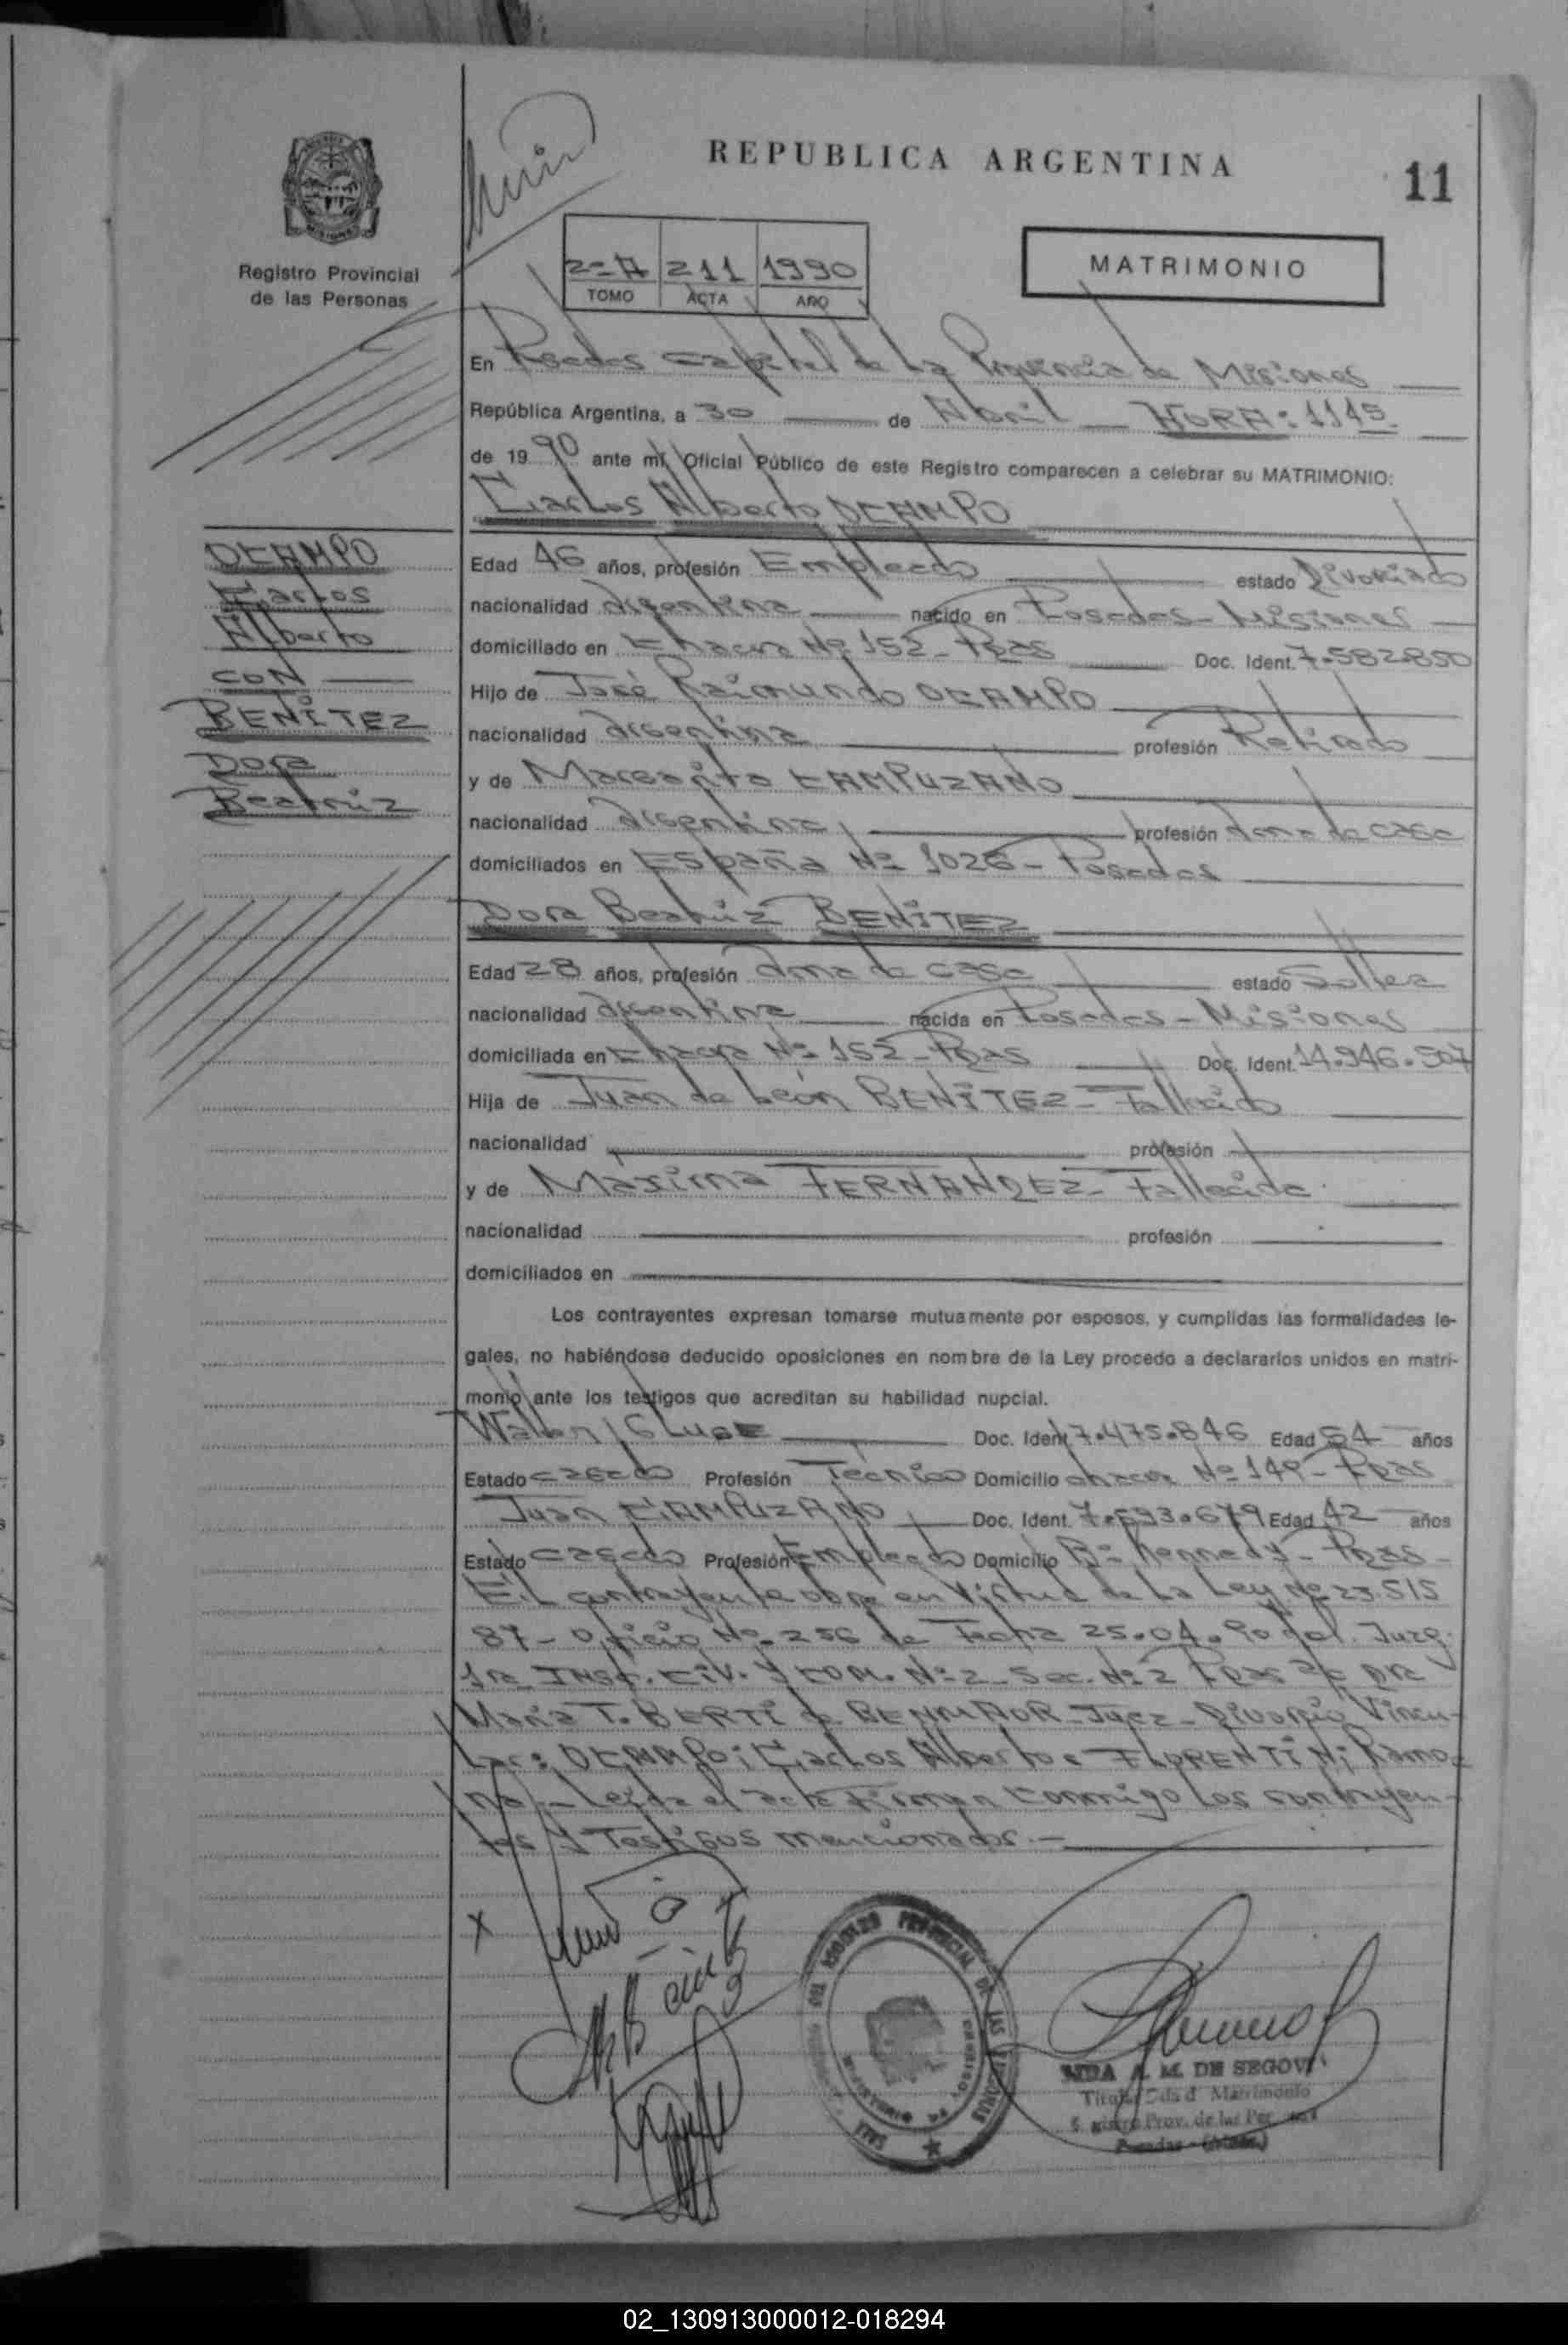 REPUBLICA ARGENTINA
11
Registro Provincial
de las Personas
2º A 211 1990
TOMO ACTA AÑO
MATRIMONIO
En Posadas Capital de La Provincia de Misiones
República Argentina, a 30 de Abril HORA: 1145
de 19 90 ante mí, Oficial Público de este Registro comparecen a celebrar su MATRIMONIO:
Carlos Alberto OCAMPO
OCAMPO
Carlos
Alberto
CON
BENITEZ
Dora
Beatriz
Edad 46 años, profesión Empleado estado Divorciado
nacionalidad Argentina nacido en Posadas - Misiones
domiciliado en Chacra Nº 152 - Pdas Doc. Ident. 7.582.850
Hijo de José Raimundo OCAMPO
nacionalidad Argentina profesión Retirado
y de Margarita CAMPUZANO
nacionalidad Argentina profesión Ama de casa
domiciliados en España Nº 1026 - Posadas
Dora Beatriz BENITEZ
Edad 28 años, profesión Ama de casa estado Soltera
nacionalidad Argentina nacida en Posadas - Misiones
domiciliada en Chacra Nº 152 - Pdas Doc. Ident. 14.946.507
Hija de Juan de León BENITEZ - Fallecido
nacionalidad profesión
y de Máxima FERNANDEZ - Fallecida
nacionalidad profesión
domiciliados en
Los contrayentes expresan tomarse mutuamente por esposos, y cumplidas las formalidades le-
gales, no habiéndose deducido oposiciones en nombre de la Ley procedo a declararlos unidos en matri-
monio ante los testigos que acreditan su habilidad nupcial.
Walter Doc. Ident. 7.475.846 Edad 54 años
Estado casado Profesión Técnico Domicilio chacra Nº 149 - Pdas
Juan CAMPUZANO Doc. Ident. 7.593.679 Edad 42 años
Estado casado Profesión Empleado Domicilio Bº Kennedy - Pdas -
El contrayente obra en Virtud de La Ley Nº 23.515
87 - Oficio Nº 256 de Fecha 25.04.90 del Juzg.
1ra INST. CIV. Y COM. Nº 2 Sec. Nº 2 Pdas a/c Dra
María T. BERTI de BENMAOR - Juez - Divorcio Vincu-
lar: OCAMPO; Carlos Alberto e FLORENTIN; Ramo-
na - Leída el acta Firman Conmigo Los contrayen-
tes y Testigos mencionados.-
X
A. M. DE SEGOVIA
Matrimonio
Prov. de las
Posadas - (Mnes.)
02_130913000012-018294